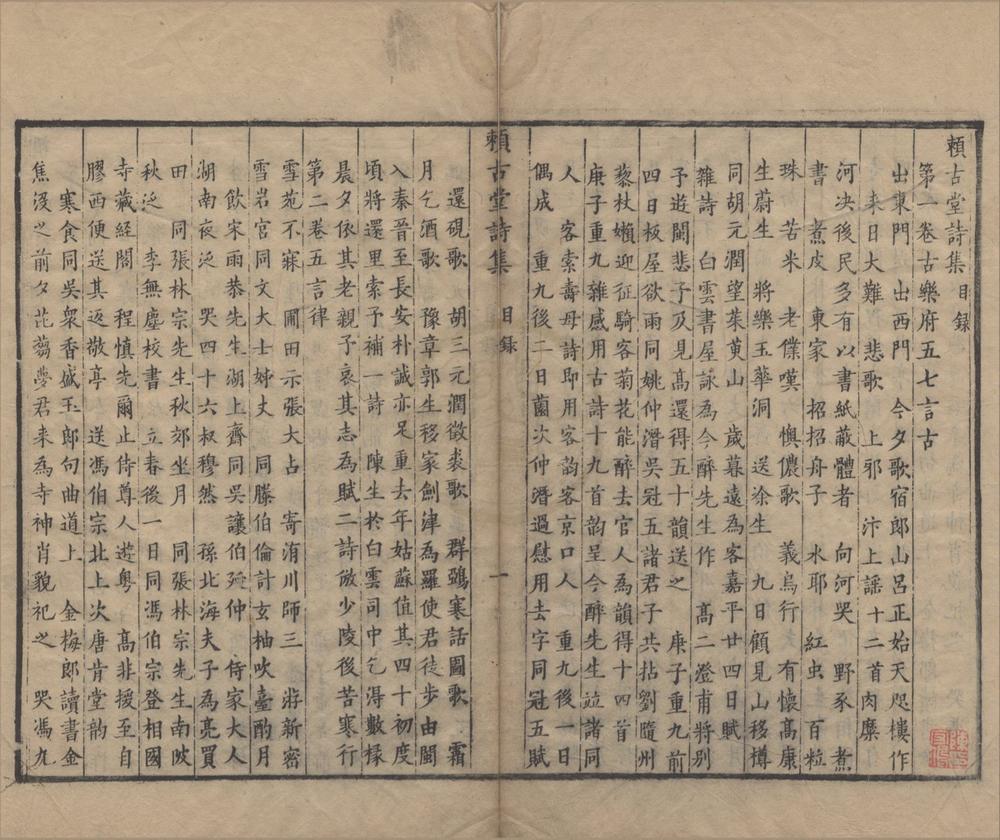 賴古堂詩集目錄
第一卷古樂府五七言古
出東門 出西門 今夕歌宿郎山呂正始天咫樓作
來日大難 悲歌 上邪 汴上謠十二首肉糜
河決後民多有以書紙蔽體者 向河哭 野豕 煮
書 煮皮 東家 招招舟子 水耶 紅虫 百粒
珠 苦米 老僕嘆 懊儂歌 義烏行 有懷高康
生蔚生 將樂玉華洞 送涂生 九日顧見山移樽
同胡元潤望茱萸山 歲暮遠為客嘉平廿四日賦
雜詩 白雲書屋詠為今醉先生作 高二澄甫將別
予遊閩悲予及見高還得五十韻送之 庚子重九前
四日板屋欲雨同姚仲潛吳冠五諸君子共拈劉隨州
藜杖嬾迎征騎客菊花能醉去官人為韻得十四首
庚子重九雜感用古詩十九首韵呈今醉先生竝諸同
人 客索壽母詩即用客韵客京口人 重九後一日
偶成 重九後二日菌次仲潛過慰用去字同冠五賦
賴古堂詩集 目錄 一
還硯歌 胡三元潤徵裘歌 群鵶寒話圖歌 霜
月乞酒歌 豫章郭生移家劍津為羅使君徒步由閩
入秦晉至長安朴誠亦足重去年姑蘇值其四十初度
頃將還里索予補一詩陳生於白雲司中乞淂數椽
晨夕依其老親予哀其志為賦二詩倣少陵後苦寒行
第二卷五言律
雪苑不寐 圃田示張大占 寄洧川師三 游新密
雪岩宮同文大士姊丈 同滕伯倫計玄柚吹臺酌月
飲宋雨恭先生湖上齋同吳讓伯殛仲 侍家大人
湖南夜泛 哭四十六叔穆然 孫北海夫子為亮買
田 同張林宗先生秋郊坐月 同張林宗先生南陂
秋泛 李無塵校書 立春後一日同馮伯宗登相國
寺藏経閣 程慎先爾止侍尊人遊粵 高非援至自
膠西便送其返敬亭 送馮伯宗北上次唐肯堂韵
寒食同吳衆香盛玉郎句曲道上 金梅郎讀書金
焦沒之前夕芘蒭夢君来為寺神肖貌祀之 哭馮九